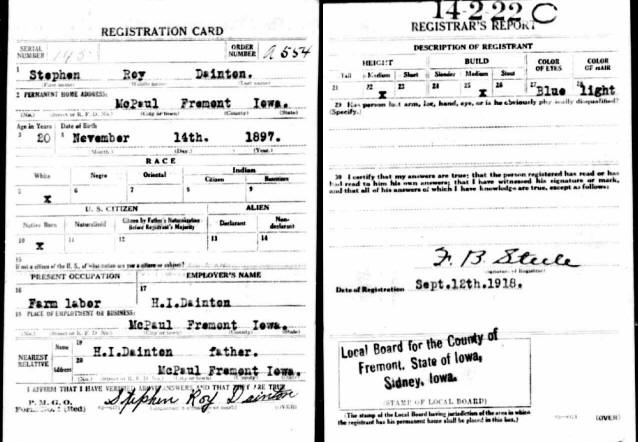 REGISTRATION CARD
SERIAL NUMBER 145
ORDER NUMBER A 554
1 Stephen Roy Dainton.
(First name) (Middle name) (Last name)
2 PERMANENT HOME ADDRESS:
McPaul Fremont Iowa.
(No.) (Street or R. F. D. No.) (City or town) (County) (State)
Age in Years Date of Birth
3 20 4 Nevember 14th. 1897.
(Month.) (Day.) (Year.)
RACE
White Negro Oriental Indian
Citizen Noncitizen
5 X 6 7 8 9
U. S. CITIZEN ALIEN
Native Born Naturalized Citizen by Father's Naturalization Before Registrant's Majority Declarant Non-declarant
10 X 11 12 13 14
15
If not a citizen of the U. S., of what nation are you a citizen or subject?
PRESENT OCCUPATION EMPLOYER'S NAME
16 17
Farm labor H.I.Dainton
18 PLACE OF EMPLOYMENT OR BUSINESS:
McPaul Fremont Iowa.
(No.) (Street or R. F. D. No.) (City or town) (County) (State)
NEAREST RELATIVE
Name 19 H.I.Dainton father.
Address 20 McPaul Fremont Iowa.
(No.) (City or town) (County) (State)
I AFFIRM THAT I HAVE VERIFIED ABOVE ANSWERS AND THAT THEY ARE TRUE
P. M. G. O.
Form No. 1 (Red) Stephen Roy Dainton
(OVER)
14-2-22 C
REGISTRAR'S REPORT
DESCRIPTION OF REGISTRANT
HEIGHT BUILD COLOR OF EYES COLOR OF HAIR
Tall Medium Short Slender Medium Stout
21 22 X 23 24 25 X 26 27 Blue 28 light
29 Has person lost arm, leg, hand, eye, or is he obviously physically disqualified?
(Specify.)
30 I certify that my answers are true; that the person registered has read or has
had read to him his own answers; that I have witnessed his signature or mark,
and that all of his answers of which I have knowledge are true, except as follows:
F. B. Steele
(Signature of Registrar)
Date of Registration Sept.12th.1918.
Local Board for the County of
Fremont, State of Iowa,
Sidney, Iowa.
(STAMP OF LOCAL BOARD)
(The stamp of the Local Board having jurisdiction of the area in which
the registrant has his permanent home shall be placed in this box.)
(OVER)